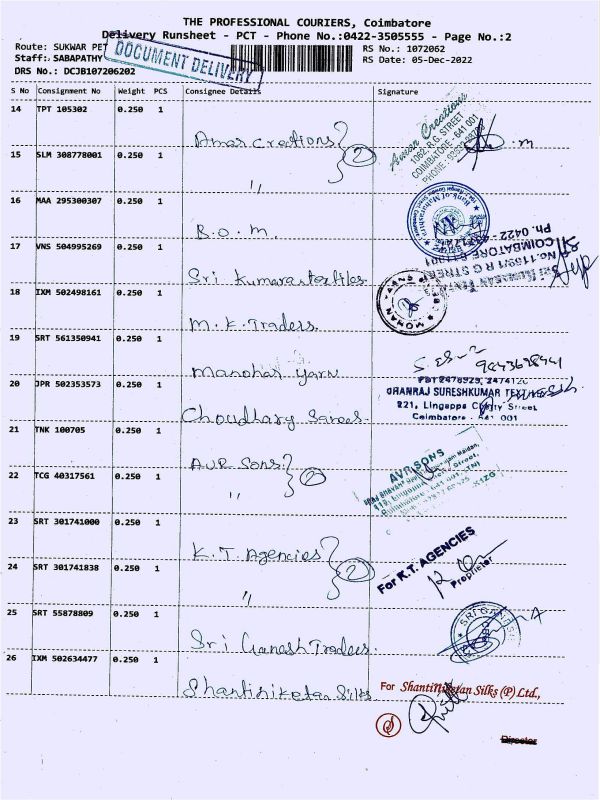 THE PROFESSIONAL COURIERS, Coimbatore
Delivery Runsheet - PCT - Phone No.:0422-3505555 - Page No.:2
Route: SUKWAR PET
RS No.: 1072062
Staff: SABAPATHY
RS Date: 05-Dec-2022
DRS No.: DCJB107206202
DOCUMENT DELIVERY
S No Consignment No Weight PCS Consignee Details Signature
14 TPT 105302 0.250 1 Amar Creations 2
Aman Creations
1062, R.G. STREET
COIMBATORE - 641 001
PHONE :
15 SLM 308778001 0.250 1 "
16 MAA 295300307 0.250 1 B.O.M.
Bank of Maharashtra
17 VNS 504995269 0.250 1 Sri Kumaran textiles
No.1159/1 R G STREET
COIMBATORE
Ph. 0422 -
18 IXM 502498161 0.250 1 M.K. Traders
MOHAN
19 SRT 561350941 0.250 1 Manohar yarn
20 JPR 502353573 0.250 1 Choudhary Sarees
2478929, 2474120
DHANRAJ SURESHKUMAR
221, Lingappa Chetty Street,
Coimbatore - 641 001
21 TNK 100705 0.250 1 AVR Sons 2
AVR SONS
22 TCG 40317561 0.250 1 "
23 SRT 301741000 0.250 1 K.T. Agencies 2
For K.T. AGENCIES
Proprietor
24 SRT 301741838 0.250 1 "
25 SRT 55878809 0.250 1 Sri Ganesh Traders
26 IXM 502634477 0.250 1 Shantiniketan Silks
For Shantiniketan Silks (P) Ltd.,
Director